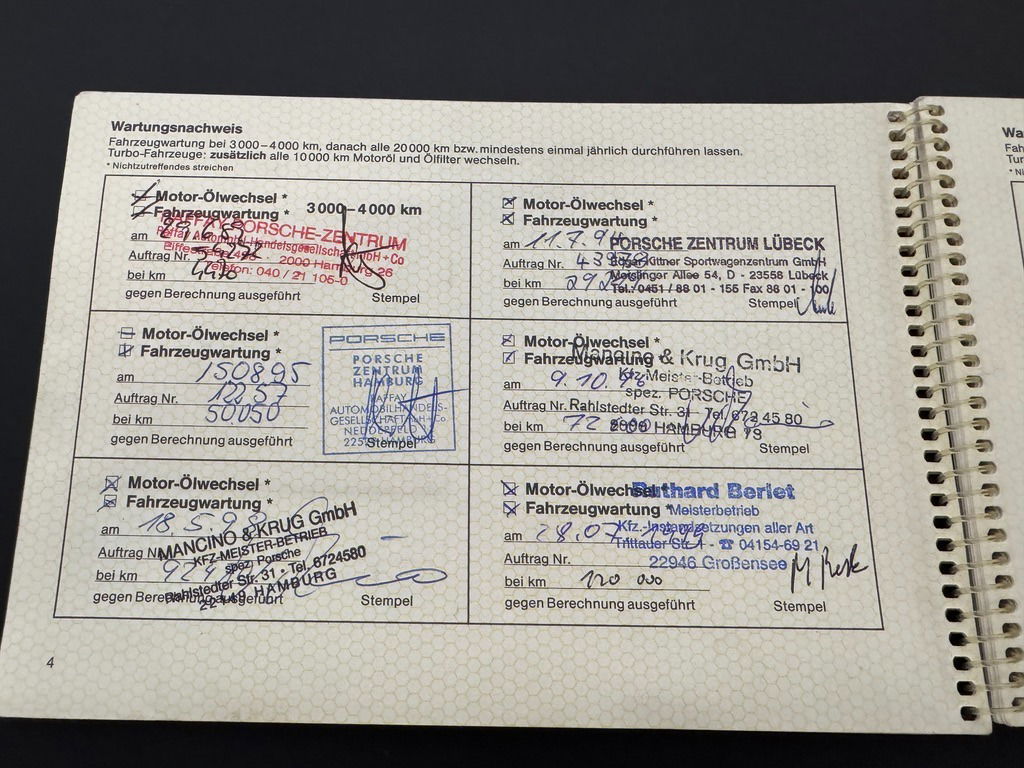 Wartungsnachweis
Fahrzeugwartung bei 3000–4000 km, danach alle 20000 km bzw. mindestens einmal jährlich durchführen lassen.
Turbo-Fahrzeuge: zusätzlich alle 10000 km Motoröl und Ölfilter wechseln.
* Nichtzutreffendes streichen
Motor-Ölwechsel *
Fahrzeugwartung * 3000–4000 km
PORSCHE-ZENTRUM
2000
Telefon: 040 / 21 105-0
am
Auftrag Nr.
bei km
gegen Berechnung ausgeführt Stempel
Motor-Ölwechsel *
Fahrzeugwartung *
am 11.7.94
PORSCHE ZENTRUM LÜBECK
Kittner Sportwagenzentrum GmbH
Auftrag Nr.
Allee 54, D - 23558 Lübeck
bei km
Tel.: 0451 / 88 01 - 155 Fax 88 01 - 100
gegen Berechnung ausgeführt Stempel
Motor-Ölwechsel *
Fahrzeugwartung *
am 150895
Auftrag Nr. 12257
bei km 50050
gegen Berechnung ausgeführt Stempel
PORSCHE
PORSCHE
ZENTRUM
HAMBURG
RAFFAY
AUTOMOBILHANDELS-
Motor-Ölwechsel *
Fahrzeugwartung *
Mancino & Krug GmbH
Kfz-Meister-Betrieb
am 9.10.96
spez. PORSCHE
Auftrag Nr. Rahlstedter Str. 31 Tel. 672 45 80
bei km HAMBURG 73
gegen Berechnung ausgeführt Stempel
Motor-Ölwechsel *
Fahrzeugwartung *
am 18.5.98
MANCINO & KRUG GmbH
KFZ-MEISTER-BETRIEB
spez. Porsche
Auftrag Nr.
Rahlstedter Str. 31 • Tel. 6724580
bei km
22149 HAMBURG
gegen Berechnung ausgeführt Stempel
Motor-Ölwechsel *
Fahrzeugwartung *
Ruthard Berlet
Meisterbetrieb
am 28.07.1999
Kfz.-Instandsetzungen aller Art
Trittauer Str. 1 - ☎ 04154-69 21
Auftrag Nr.
22946 Großensee
bei km 120 000
gegen Berechnung ausgeführt Stempel
4